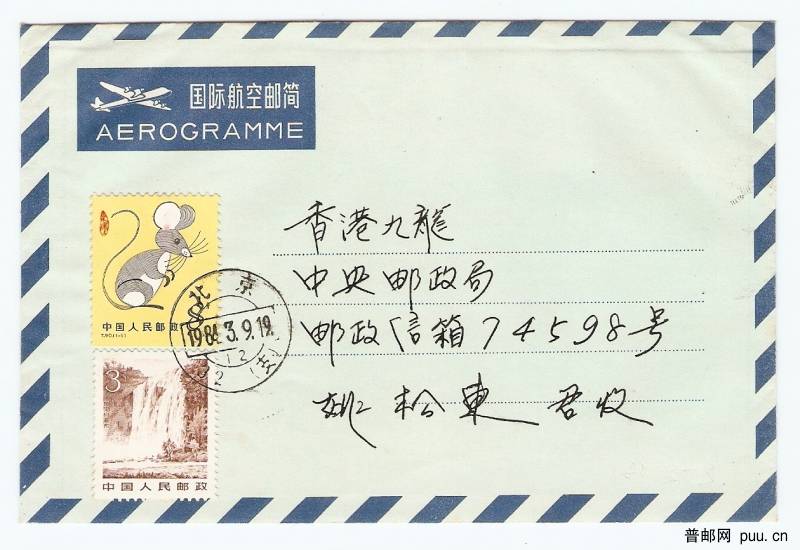 国际航空邮简
AEROGRAMME
香港九龍
中央邮政局
邮政信箱74598号
姚松東 君收
8
中国人民邮政
T.90.(1-1)
北京
1984.3.9.19
12
3
中国人民邮政
普邮网 puu.cn